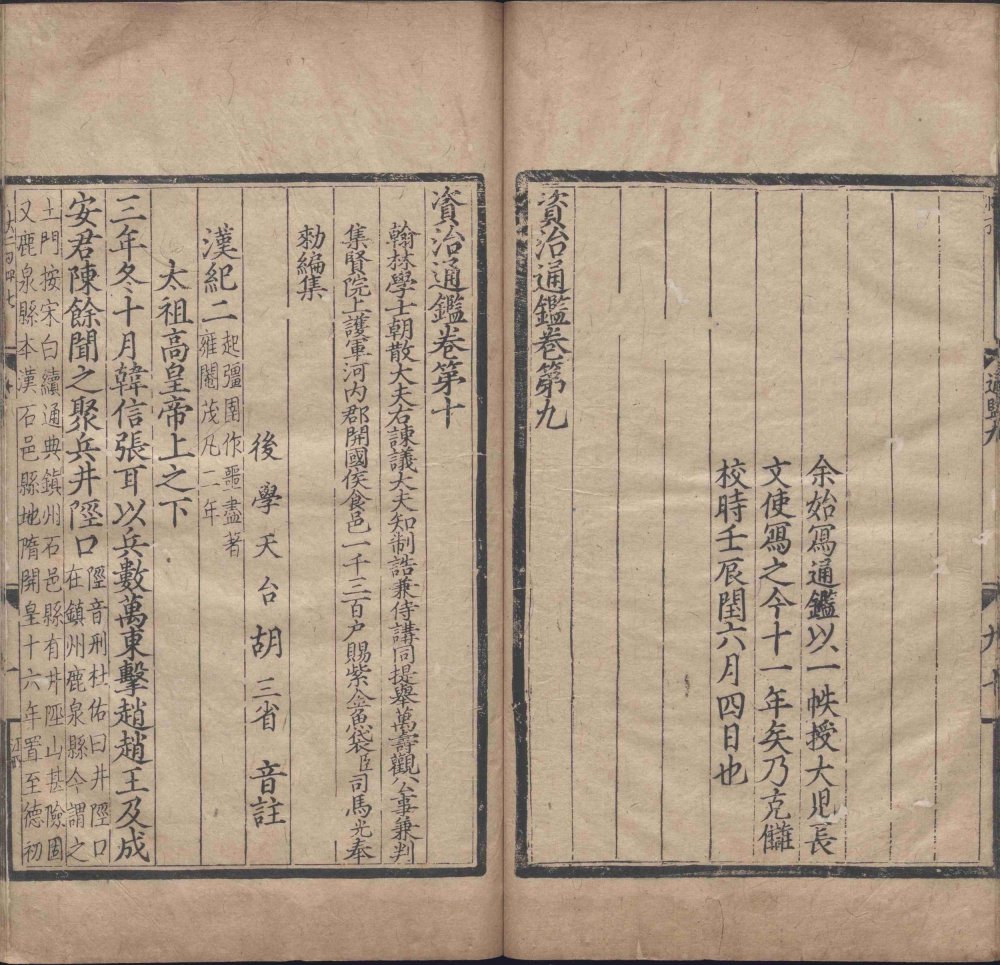 通鑑九
余始寫通鑑以一帙授大児長
文使寫之今十一年矣乃克讎
校時壬辰閏六月四日也
資治通鑑卷第九
資治通鑑卷第十
翰林學士朝散大夫右諫議大夫知制誥兼侍講同提舉萬壽觀公事兼判
集賢院上護軍河内郡開國侯食邑一千三百户賜紫金魚袋臣司馬光奉
勑編集
後學天台胡三省音註
漢紀二起彊圉作噩盡著
雍閹茂凡二年
太祖高皇帝上之下
三年冬十月韓信張耳以兵數萬東擊趙趙王及成
安君陳餘聞之聚兵井陘口陘音刑杜佑曰井陘口
在鎮州鹿泉縣今謂之
土門按宋白續通典鎮州石邑縣有井陘山甚險固
又鹿泉縣本漢石邑縣地隋開皇十六年置至德初